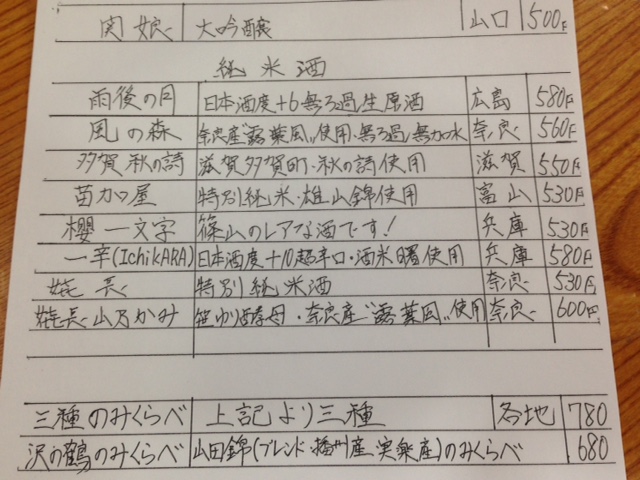 関娘 大吟醸 山口 500円
純米酒
雨後の月 日本酒度+6 無ろ過生原酒 広島 580円
風の森 奈良産"露葉風"使用・無ろ過・無加水 奈良 560円
多賀 秋の詩 滋賀多賀町・秋の詩使用 滋賀 550円
苗加屋 特別純米・雄山錦使用 富山 530円
櫻一文字 篠山のレアな酒です! 兵庫 530円
一辛(IchiKARA) 日本酒度+10超辛口・酒米曙使用 兵庫 580円
嬉長 特別純米酒 奈良 530円
嬉長 山乃かみ 笹ゆり酵母・奈良産"露葉風"使用 奈良 600円
三種のみくらべ 上記より三種 各地 780
沢の鶴のみくらべ 山田錦(ブレンド・播州産・実楽産)のみくらべ 680